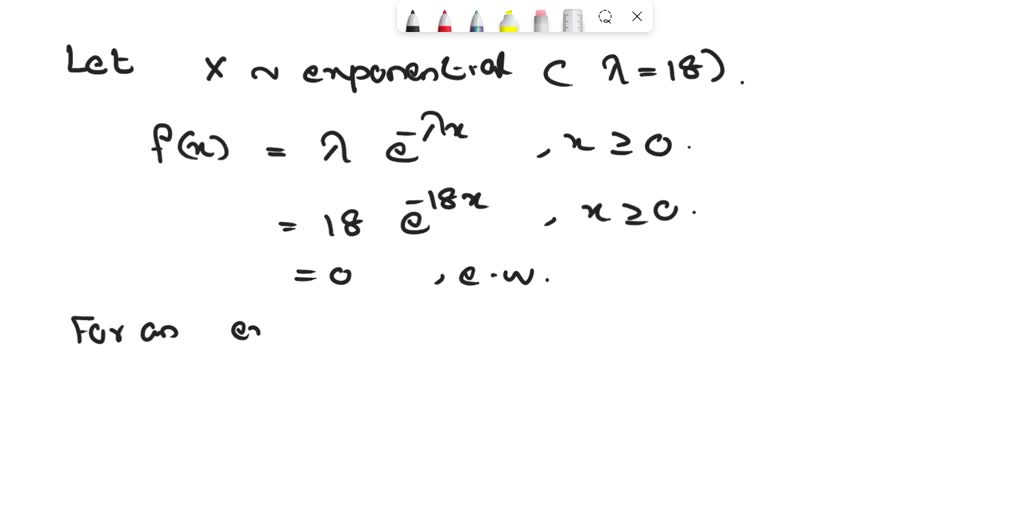 Let X ~ exponential ( λ = 18).
f(x) = λ e^{-λx} , x ≥ 0.
= 18 e^{-18x} , x ≥ 0.
= 0 , e.w.
For an ex